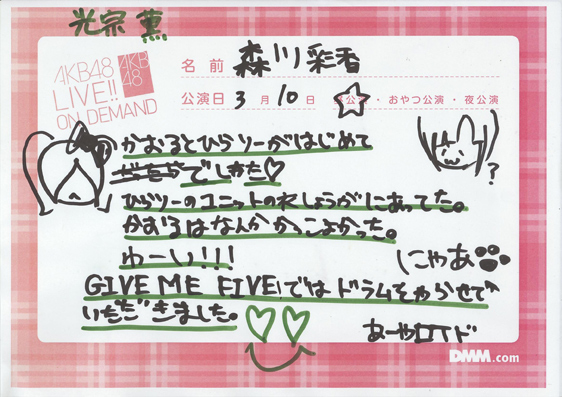 光宗 薫
AKB48
LIVE!!
ON DEMAND
AKB
48
名前 森川彩香
公演日 3月10日 昼公演・おやつ公演・夜公演
かおるとひらりーがはじめて
でしかた♡
?
ひらりーのユニットのいしょうがにあってた。
かおるはなんかかっこよかった。
わーい!!!
にゃあ
GIVE ME FIVE!ではドラムをやらせて
いただきました。
あーやロイド
DMM.com